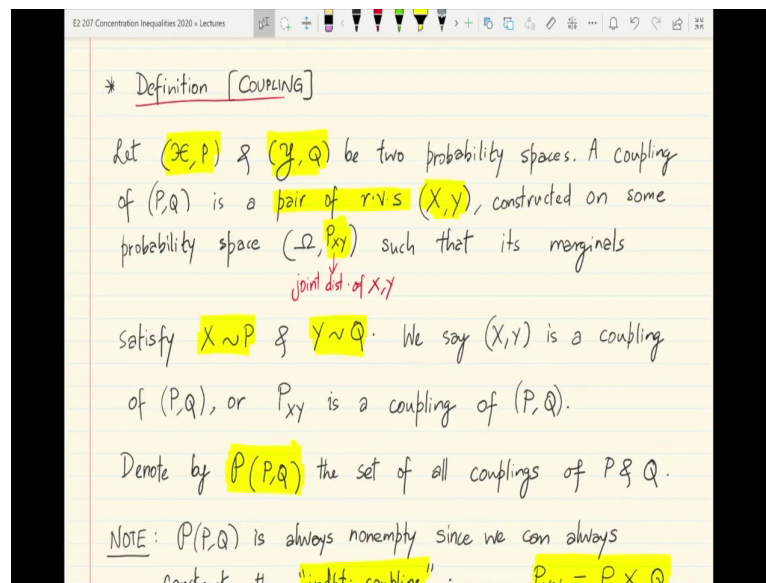 E2 207 Concentration Inequalities 2020 » Lectures
* Definition [COUPLING]
Let (𝒳, P) & (𝒴, Q) be two probability spaces. A coupling
of (P,Q) is a pair of r.v.s (X,Y), constructed on some
probability space (Ω, P_XY) such that its marginals
joint dist. of X,Y
satisfy X ~ P & Y ~ Q. We say (X,Y) is a coupling
of (P,Q), or P_XY is a coupling of (P,Q).
Denote by 𝒫(P,Q) the set of all couplings of P & Q.
NOTE: 𝒫(P,Q) is always nonempty since we can always
"indpt. coupling" : P_XY = P × Q